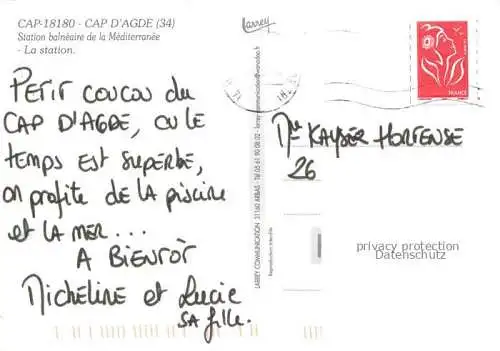 CAP-18180 - CAP D'AGDE (34)
Station balnéaire de la Méditerranée
- La station.
Larrey
PETIT COUCOU du
CAP D'AGDE, OU LE
TEMPS EST SUPERBE,
on profite de LA piscine
et LA MER...
A BIENTÔT
Micheline et Lucie
SA fille.
LARREY COMMUNICATION 31160 ARBAS - Tél 05 61 90 08 02 - larrey.communication@wanadoo.fr
Reproduction interdite
FRANCE
KAYSER HORTENSE
26
privacy protection
Datenschutz